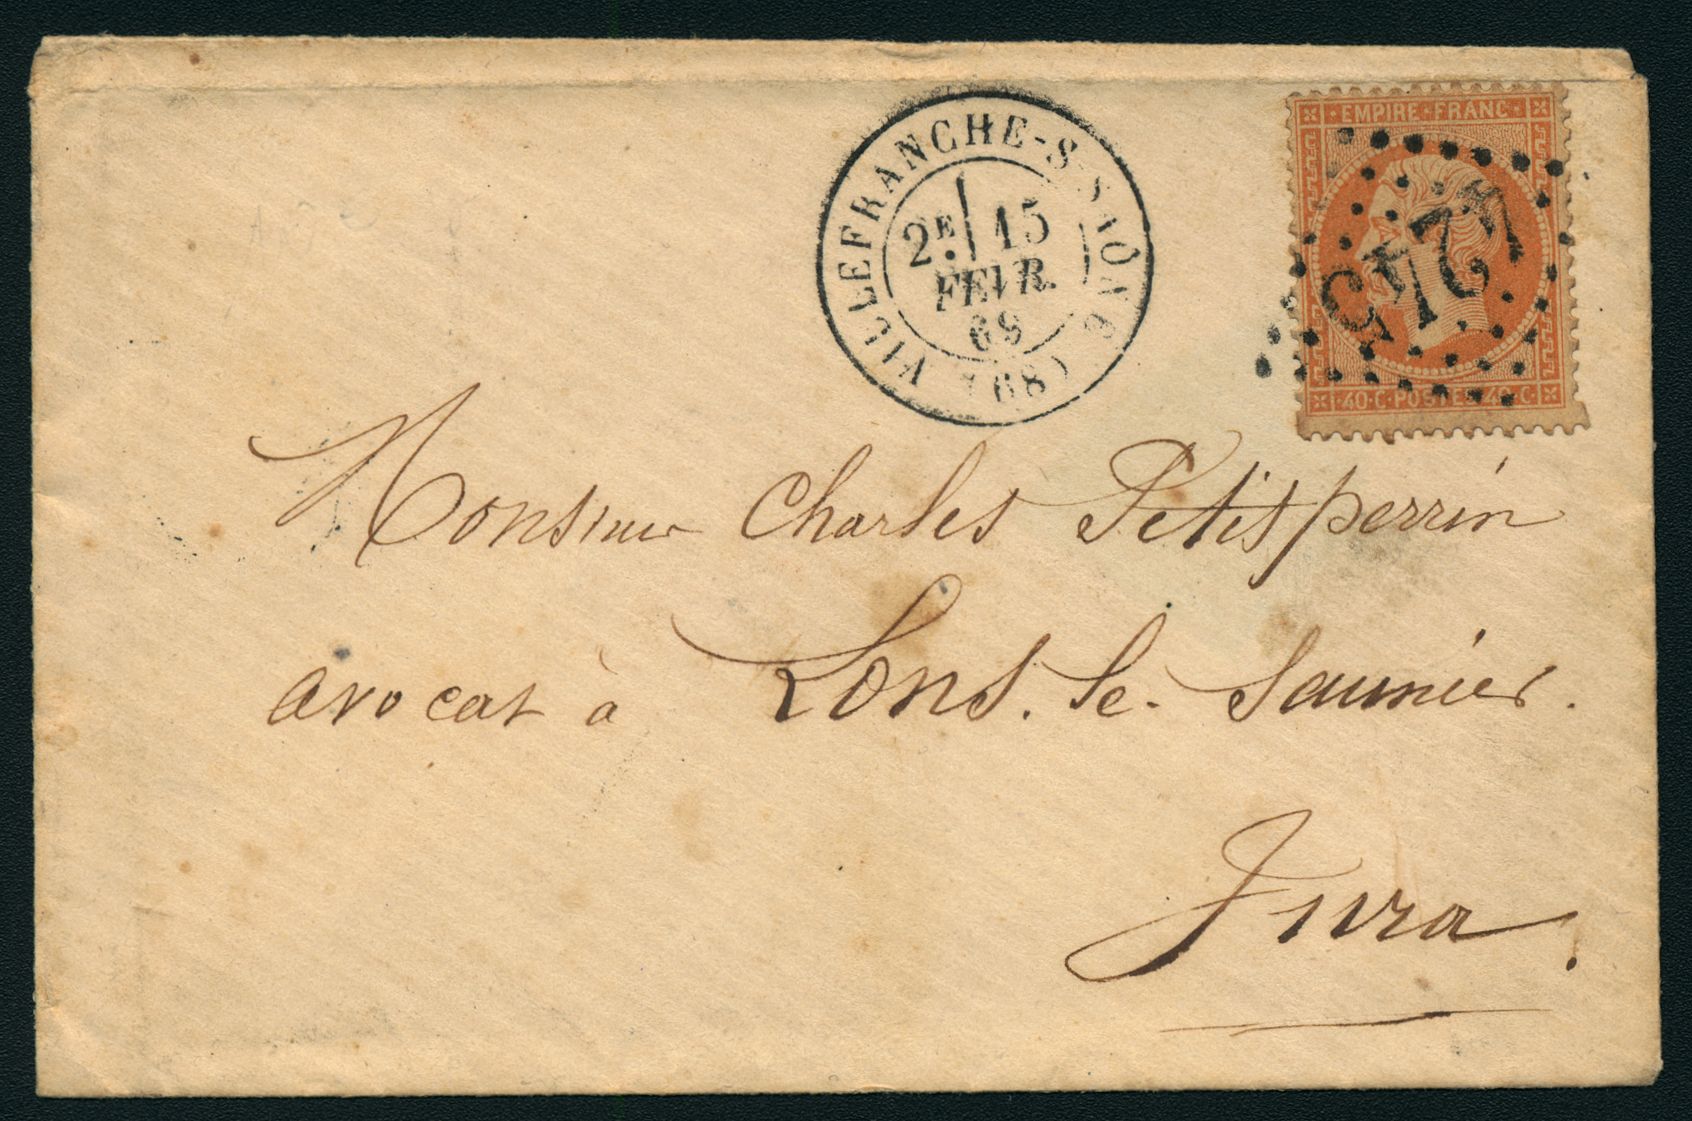 EMPIRE·FRANC
VILLEFRANCHE-S-SAÔNE (68)
2E 15
FEVR.
69
40·C·POSTES·40·C
Monsieur Charles Petitsperrin
avocat à Lons. le. Saunier.
Jura.